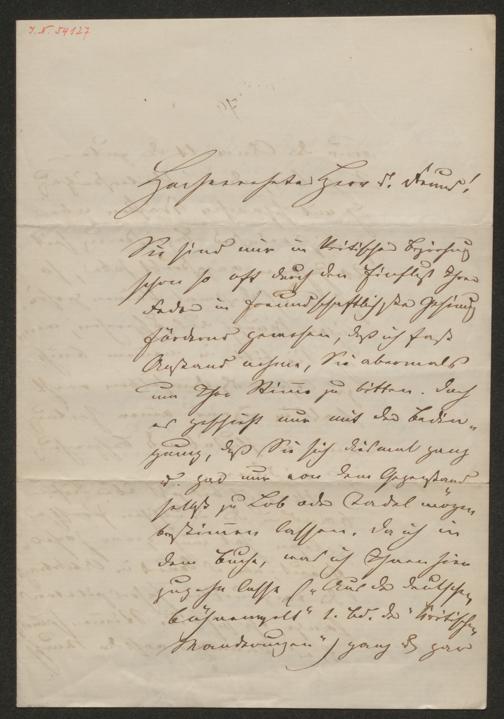 J. N. 54127
Hochverehrter Herr u. Freund!
Sie sind mir in kritischer Beziehung
schon so oft durch den Einfluß Ihrer
Feder in freundschaftlichster Gesinnung
fördernd gewesen, daß ich fast
Anstand nehme, Sie abermals
um Ihre Stimme zu bitten. Doch
es geschieht nur mit der Bedin-
gung, daß Sie sich diesmal ganz
u. gar nur von dem Gegenstand
selbst zu Lob oder Tadel mögen
bestimmen lassen. Da ich in
dem Buche, was ich Ihnen hier
zugehn lasse („Aus der deutschen
Bühnenwelt" 1. Bd. der "Kritischen
Wanderungen") ganz u. gar